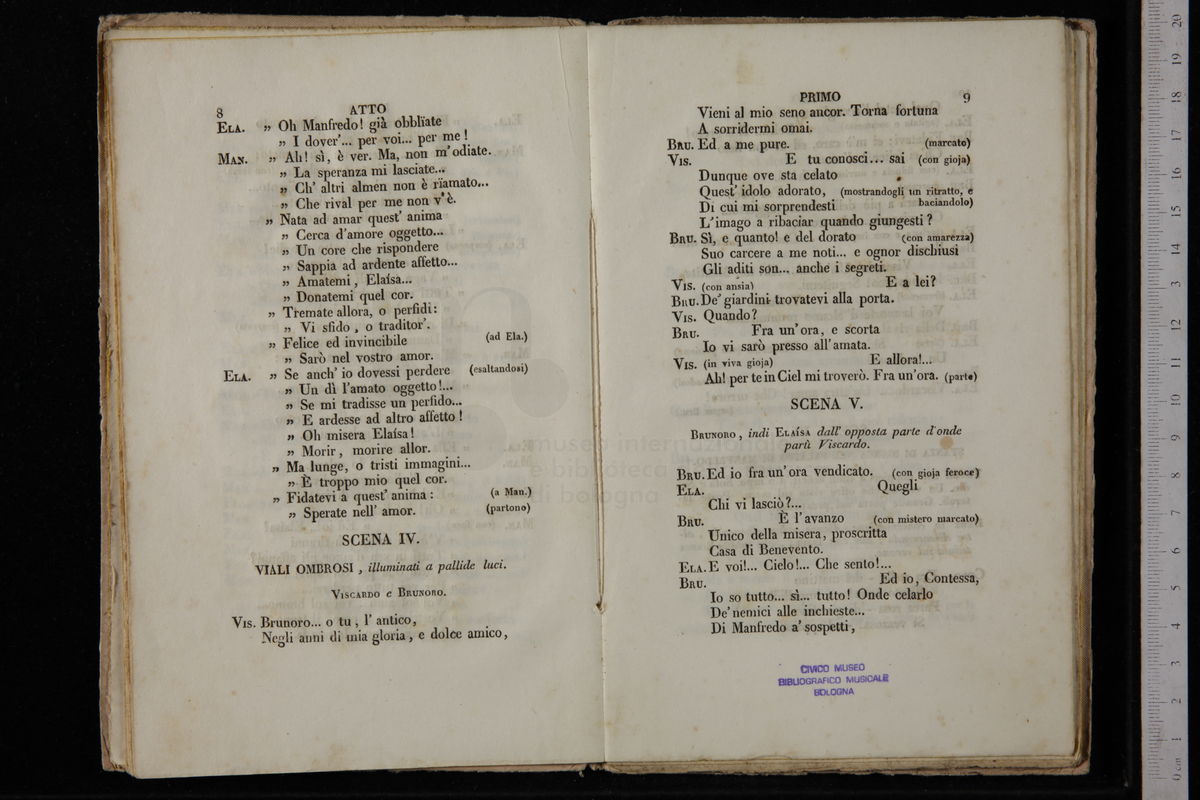 8 ATTO
ELA. „ Oh Manfredo! già obblïate
„ I dover'... per voi... per me!
MAN. „ Ah! sì, è ver. Ma, non m'odiate.
„ La speranza mi lasciate...
„ Ch' altri almen non è rïamato...
„ Che rival per me non v'è.
„ Nata ad amar quest' anima
„ Cerca d'amore oggetto...
„ Un core che rispondere
„ Sappia ad ardente affetto...
„ Amatemi, Elaísa...
„ Donatemi quel cor.
„ Tremate allora, o perfidi:
„ Vi sfido, o traditor'.
„ Felice ed invincibile (ad Ela.)
„ Sarò nel vostro amor.
ELA. „ Se anch' io dovessi perdere (esaltandosi)
„ Un dì l'amato oggetto!...
„ Se mi tradisse un perfido...
„ E ardesse ad altro affetto!
„ Oh misera Elaísa!
„ Morir, morire allor.
„ Ma lunge, o tristi immagini...
„ È troppo mio quel cor.
„ Fidatevi a quest' anima: (a Man.)
„ Sperate nell' amor. (partono)
SCENA IV.
VIALI OMBROSI, illuminati a pallide luci.
VISCARDO e BRUNORO.
VIS. Brunoro... o tu, l' antico,
Negli anni di mia gloria, e dolce amico,
PRIMO 9
Vieni al mio seno ancor. Torna fortuna
A sorridermi omai.
BRU. Ed a me pure. (marcato)
VIS. E tu conosci... sai (con gioja)
Dunque ove sta celato
Quest' idolo adorato, (mostrandogli un ritratto, e
Di cui mi sorprendesti baciandolo)
L'imago a ribaciar quando giungesti?
BRU. Sì, e quanto! e del dorato (con amarezza)
Suo carcere a me noti... e ognor dischiusi
Gli aditi son... anche i segreti.
VIS. (con ansia) E a lei?
BRU. De' giardini trovatevi alla porta.
VIS. Quando?
BRU. Fra un' ora, e scorta
Io vi sarò presso all' amata.
VIS. (in viva gioja) E allora!...
Ah! per te in Ciel mi troverò. Fra un' ora. (parte)
SCENA V.
BRUNORO, indi ELAÍSA dall' opposta parte d'onde
partì Viscardo.
BRU. Ed io fra un' ora vendicato. (con gioja feroce)
ELA. Quegli
Chi vi lasciò?...
BRU. È l' avanzo (con mistero marcato)
Unico della misera, proscritta
Casa di Benevento.
ELA. E voi!... Cielo!... Che sento!...
BRU. Ed io, Contessa,
Io so tutto... sì... tutto! Onde celarlo
De' nemici alle inchieste...
Di Manfredo a' sospetti,
CIVICO MUSEO
BIBLIOGRAFICO MUSICALE
BOLOGNA
museo internazionale
e biblioteca
di bologna
0 cm 1 2 3 4 5 6 7 8 9 10 11 12 13 14 15 16 17 18 19 20